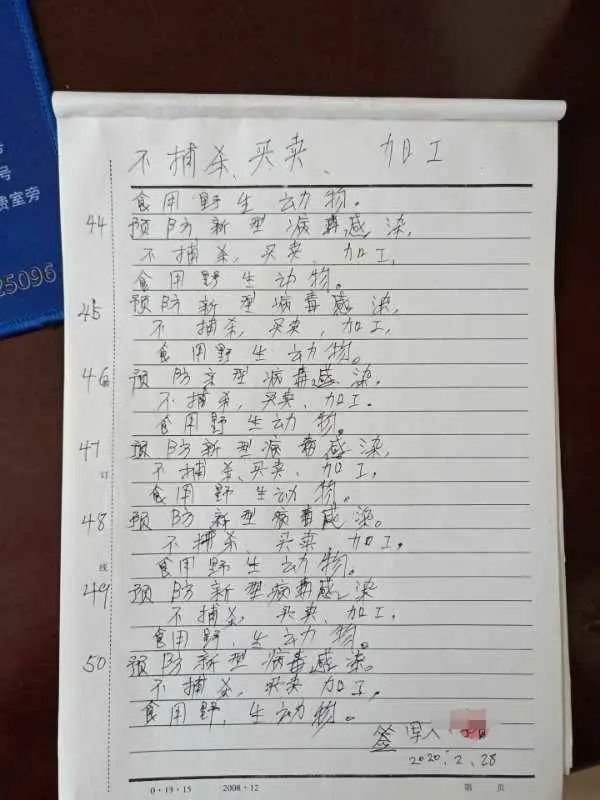 号
费室旁
25096
不捕杀、买卖、加工
食用野生动物。
44 预防新型病毒感染,
不捕杀,买卖,加工,
食用野生动物。
45 预防新型病毒感染,
不捕杀,买卖,加工,
食用野生动物。
46 预防新型病毒感染,
不捕杀,买卖、加工.
食用野生动物。
47 预防新型病毒感染,
不捕杀、买卖、加工,
食用野生动物。
48 预防新型病毒感染。
不捕杀、买卖、加工,
食用野生动物。
49 预防新型病毒感染
不捕杀、买卖、加工,
食用野、生动物。
50 预防新型病毒感染。
不捕杀,买卖加工,
食用野、生动物。
签写人
2020.2.28
订
线
0·19·15 2008·12 第 页